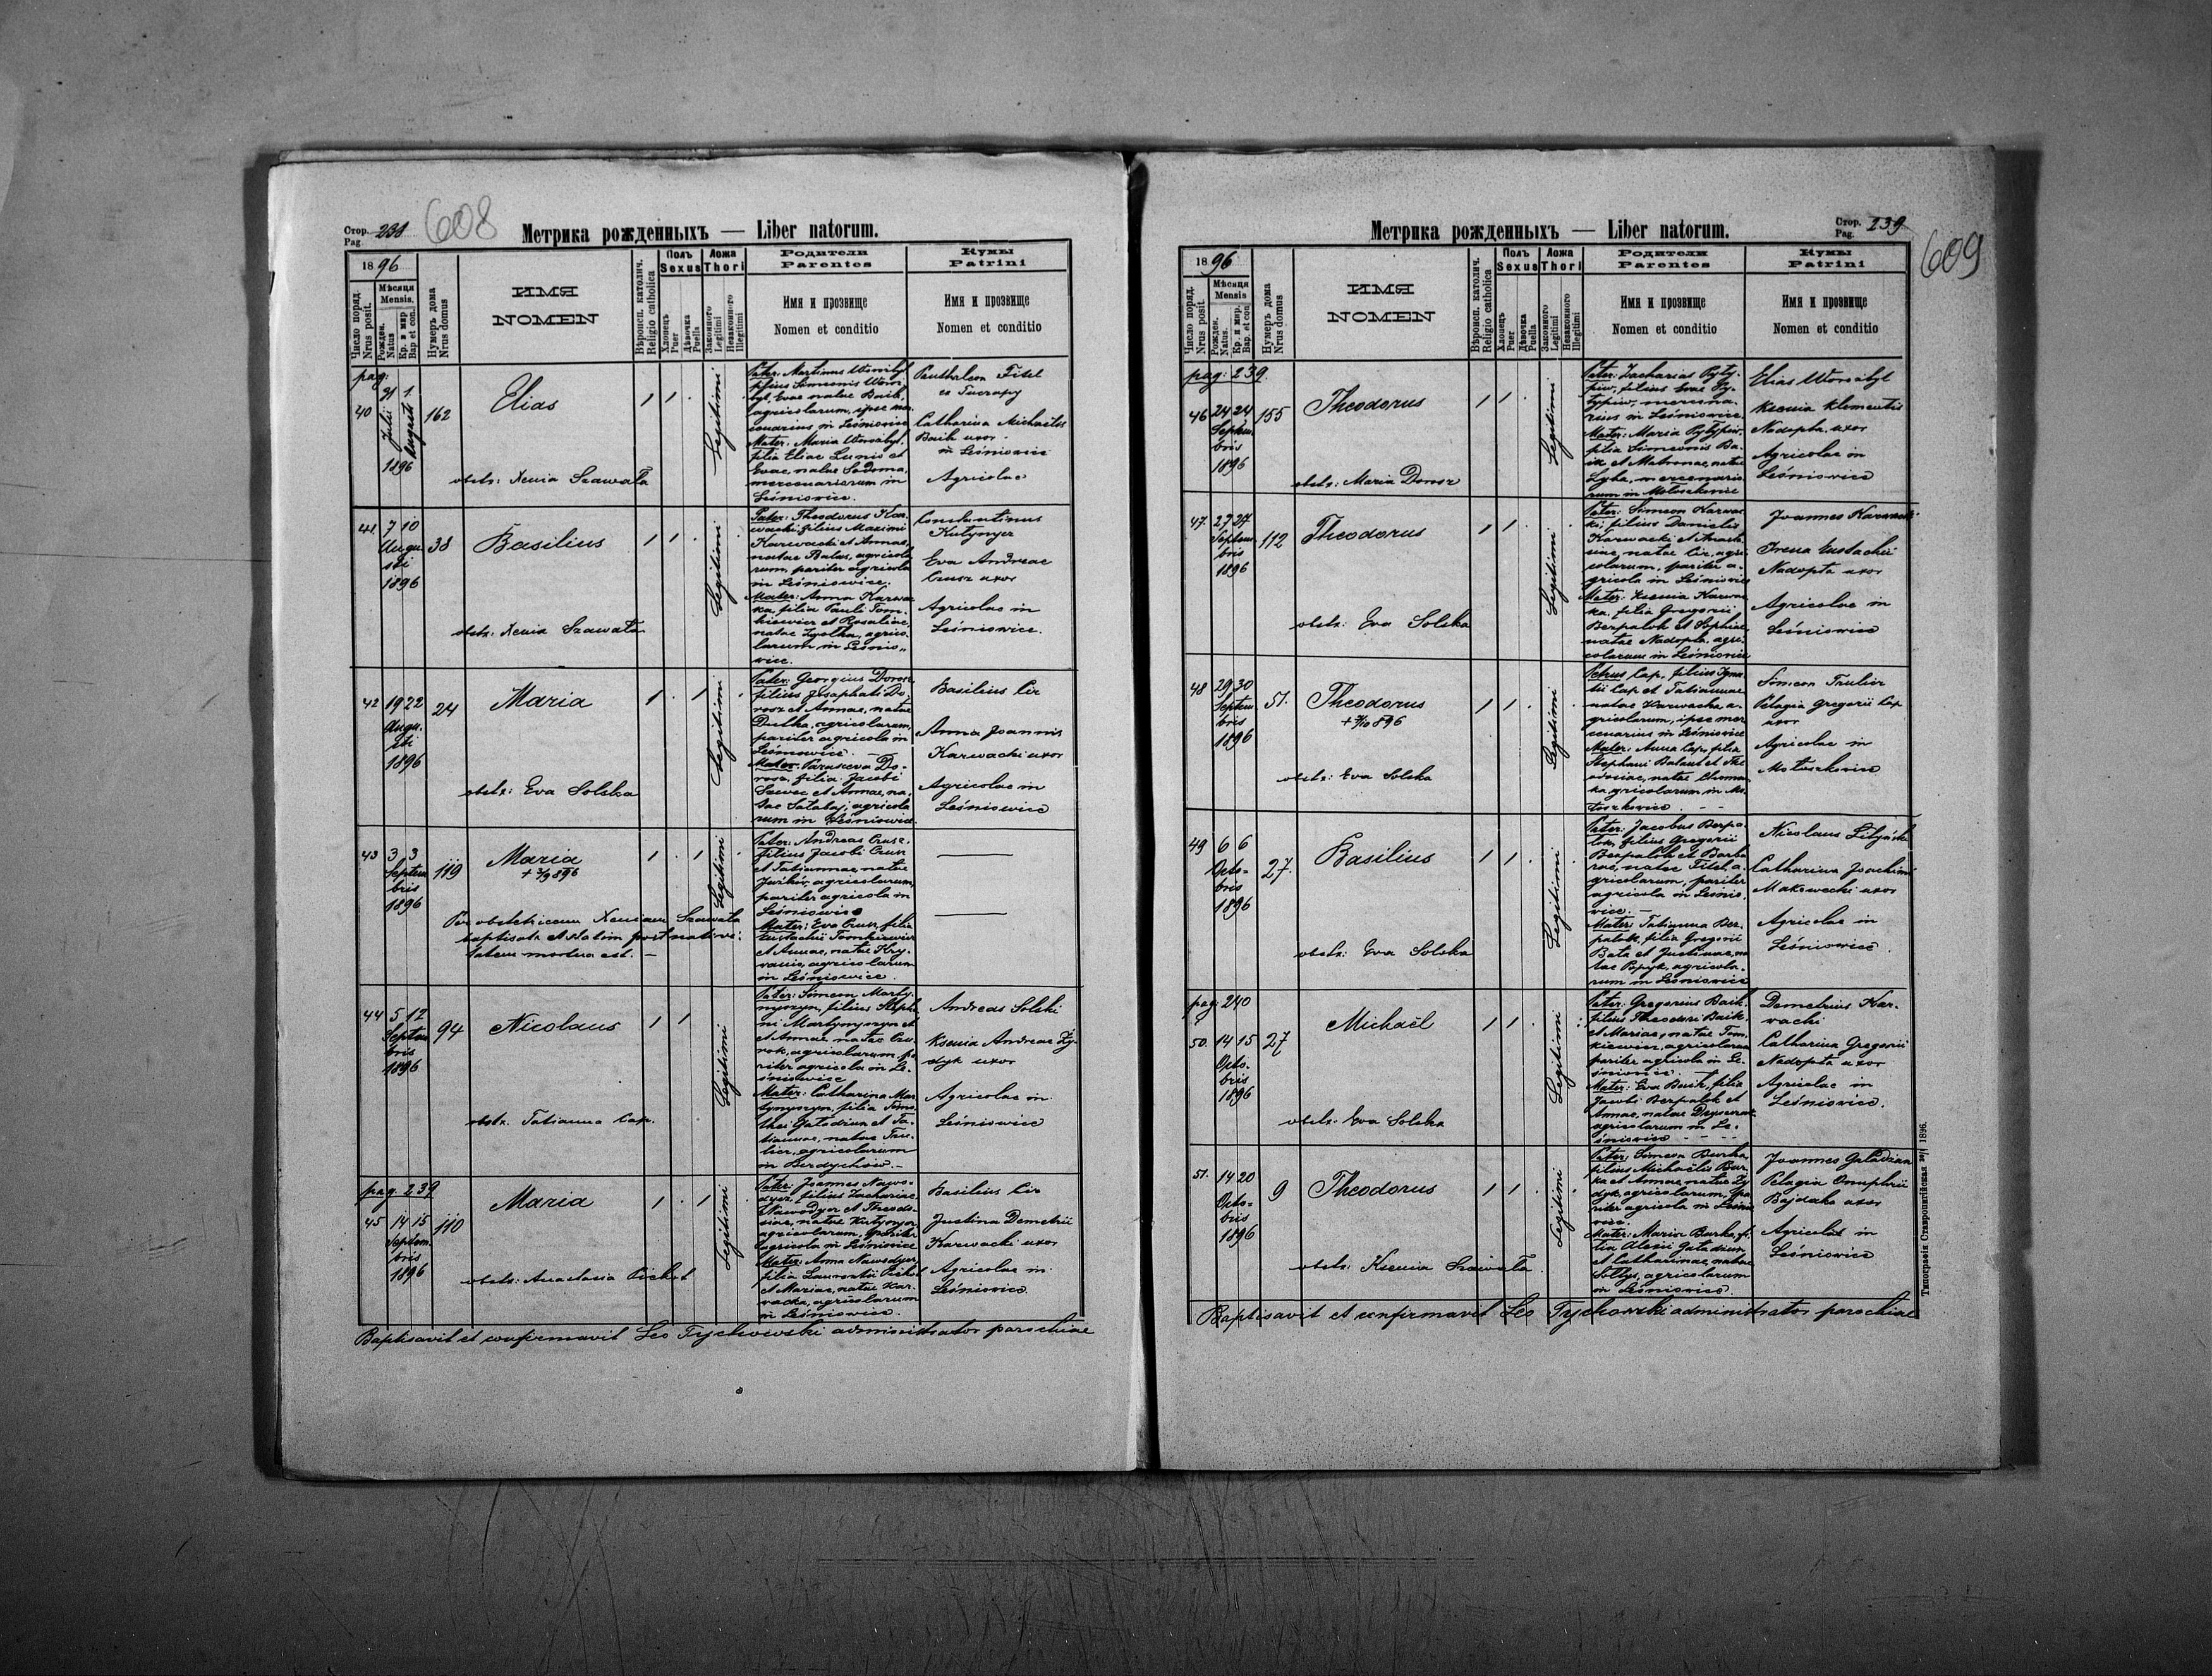 Стор. Pag. 238
608
Метрика рожденныхъ — Liber natorum.
1896
Число поряд. Nrus posit.
Мѣсяця Mensis.
Рожден. Natus
Кр. и мир. Bap et con.
Нумеръ дома Nrus domus
ИМЯ
NOMEN
Вѣроисп. католич. Religio catholica
Полъ Sexus
Хлопецъ Puer
Дѣвочка Puella
Ложа Thori
Законного Legitimi
Незаконного Illegitimi
Родители
Parentes
Имя и прозвище
Nomen et conditio
Кумы
Patrini
Имя и прозвище
Nomen et conditio
pag:
40
31 1
Julii Augusti
1896
162
Elias
1 1 .
Legitimi
obstr: Xenia Szawała
Pater: Martinus
filius Simeonis
Evae natae Baik,
agricolarum, ipse mer
cenarius in Leśniowice
Mater: Maria
filia Eliae Lunis et
Evae, natae Sodoma,
mercenariorum in
Leśniowice.
Panthaleon Fitel
ex Tuczapy
Catharina Michaelis
Baik uxor
in Leśniowice
Agricolae
41.
7 10
Augu
sti
1896
38
Basilius
1 1 .
Legitimi
obstr: Xenia Szawała
Pater: Theodorus Kar
wacki, filius Maximi
Karwacki et Annae,
natae Balas, agricola
rum, pariter agricola
in Leśniowice.
Mater: Anna Karwac
ka, filia Pauli Tom
kiewicz et Rosaliae,
natae agrico
larum in Leśnio„
wice.
Constantinus
Kutynyer
Eva Andreae
Crusz uxor
Agricolae in
Leśniowice.
42
19 22
Augu.
sti
1896
24
Maria
1 . 1
Legitimi
obstr: Eva Solska
Pater: Georgius Dorosz
filius Josaphati Do
rosz et Annae, natae
Dutka, agricolarum,
pariter agricola in
Leśniowice. —
Mater: Parasceva Do-
rosz, filia Jacobi
Szwec et Annae, na
tae Sałabaj, agricola
rum in Leśniowice
Basilius Cir
Anna Joannis
Karwacki uxor
Agricolae in
Leśniowice
43
3 3
Septem
bris
1896
119
Maria
+ 3/9 896
1 . 1
Legitimi
Per obstetricem Xeniam Szawała
baptisata et statim post nativi.
tatem mortua est. —
Pater: Andreas Crusz,
filius Jacobi Crusz
et Tatiannae, natae
agricolarum,
pariter agricola in
Leśniowice
Mater: Eva Crusz, filia
Eustachii Tomkiewicz
et Annae, natae Kry
wania, agricolarum
in Leśniowice.
44
5 12
Septem
bris
1896
94
Nicolaus
1 1
Legitimi
obstr. Tatianna Cap.
Pater: Simeon Marty
nyszyn, filius Stepha
ni Martynyszyn et
et Annae natae
agricolarum, pa
riter agricola in Le.
śniowice
Mater: Catharina Mar
tynyszyn, filia Timo
thei Gaładzun et Ta
tiannae, natae Tru
lier, agricolarum
in Berdychów.—
Andreas Solski
Ksenia Andreae Ży
dyk uxor
Agricolae in
Leśniowice
pag. 239
45
14 15
Septem
bris
1896
110
Maria
1 . 1
Legitimi
obstr: Anastasia Cichot
Pater: Joannes Nawo-
dyor, filius Zachariae
Nawodyor et Theodo
siae, natae Kutynyor
agricolarum, pariter
agricola in Leśniowice
Mater: Anna Nawodyor
filia Laurentii Cichot
et Mariae, natae Kar.
wacka, agricolarum
in Leśniowice.
Basilius Cir
Justina Demetrii
Karwacki uxor
Agricolae in
Leśniowice
Baptisavit et confirmavit Leo Tychowski administrator parochiae
Стор. Pag. 239
609
Метрика рожденныхъ — Liber natorum.
1896
Число поряд. Nrus posit.
Мѣсяця Mensis
Рожден. Natus.
Кр. и мир. Bap. et con.
Нумеръ дома Nrus domus
ИМЯ
NOMEN
Вѣроисп. католич. Religio catholica
Полъ Sexus
Хлопецъ Puer
Дѣвочка Puella
Ложа Thori
Законного Legitimi
Незаконного Illegitimi
Родители
Parentes
Имя и прозвище
Nomen et conditio
Кумы
Patrini
Имя и прозвище
Nomen et conditio
pag: 239.
46
24 24
Septem
bris
1896
155
Theodorus
1 1 .
Legitimi
obstr: Maria Dorosz
Pater: Zacharias Pyty.
piw, filius Evae Py.
typiw, mercena
rius in Leśniowice.
Mater: Maria Pytypiw,
filia Simeonis Ba
ik et Matronae, natae
Lyba, mercenario
rum in Mołoszkowice
Elias
Ksenia Klementis
Nadopta uxor
Agricolae in
Leśniowice
47.
27 27
Septem
bris
1896
112
Theodorus
1 1 .
Legitimi
obstr: Eva Solska
Pater: Simeon Karwac
ki filius Danielis
Karwacki et Anasta
siae, natae Cir, agri
colarum, pariter a-
gricola in Leśniowice
Mater: Xenia Karwac
ka, filia Gregorii
Berpalok et Sophiae
natae Nadopta, agri
colarum in Leśniowice
Joannes Karwacki
Irena Eustachii
Nadopta uxor
Agricolae in
Leśniowice
48
29 30
Septem
bris
1896
51.
Theodorus
1 1 .
Legitimi
obstr: Eva Solska
Petrus Cap, filius Igna
tii Cap et Tatiannae
natae Karwacka a-
gricolarum, ipse mer
cenarius in Leśniowice
Mater: Anna Cap, filia
Stephani Balant et The
odosiae, natae
ka, agricolarum in Mo
łoszkowice. - -
Simeon Trulier
Pelagia Gregorii Cap
uxor
Agricolae in
Mołoszkowice
49
6 6
Octo-
bris
1896
27.
Basilius
1 1 .
Legitimi
obstr: Eva Solska
Pater: Jacobus Berpa
lok, filius Gregorii
Berpalok et Barba
rae, natae Fitel, a.
gricolarum, pariter
agricola in Leśnio.
wice. —
Mater: Tatianna Ber
palok, filia Gregorii
Bała et Justinae, na
tae Popyk, agricola.
rum in Leśniowice
Nicolaus
Catharina Joachimi
Makowecki uxor
Agricolae in
Leśniowice.
pag: 240
50.
14 15
Octo.
bris
1896
27
Michaël
1 1 .
Legitimi
obstr: Eva Solska
Pater: Gregorius Baik.
filius Theodori Baik
et Mariae, natae Tom
kiewicz, agricolarum
pariter agricola in Le.
śniowice. —
Mater: Eva Baik, filia
Jacobi Berpalok et
Annae, natae
agricolarum in Le.
śniowice - - -
Demetrius Kar.
wacki
Catharina Gregorii
Nadopta uxor
Agricolae in
Leśniowice.
51.
14 20
Octo-
bris
1896
9
Theodorus
1 1 .
Legitimi
obstr: Ksenia Szawała.
Pater: Simeon Burka,
filius Michaëlis Bur
ka et Annae, natae Ży
dyk, agricolarum, pa
riter agricola in Leśnio
wice.
Mater: Maria Burka, fi.
lia Alexii Gaładzun
et Catharinae, natae
Sołtys, agricolarum
in Leśniowice.
Joannes Gaładzun
Pelagia Onuphrii
Bajdala uxor
Agricolae in
Leśniowice
Baptisavit et confirmavit Leo Tychowski administrator parochiae
Типографія Ставропигійская 1896.